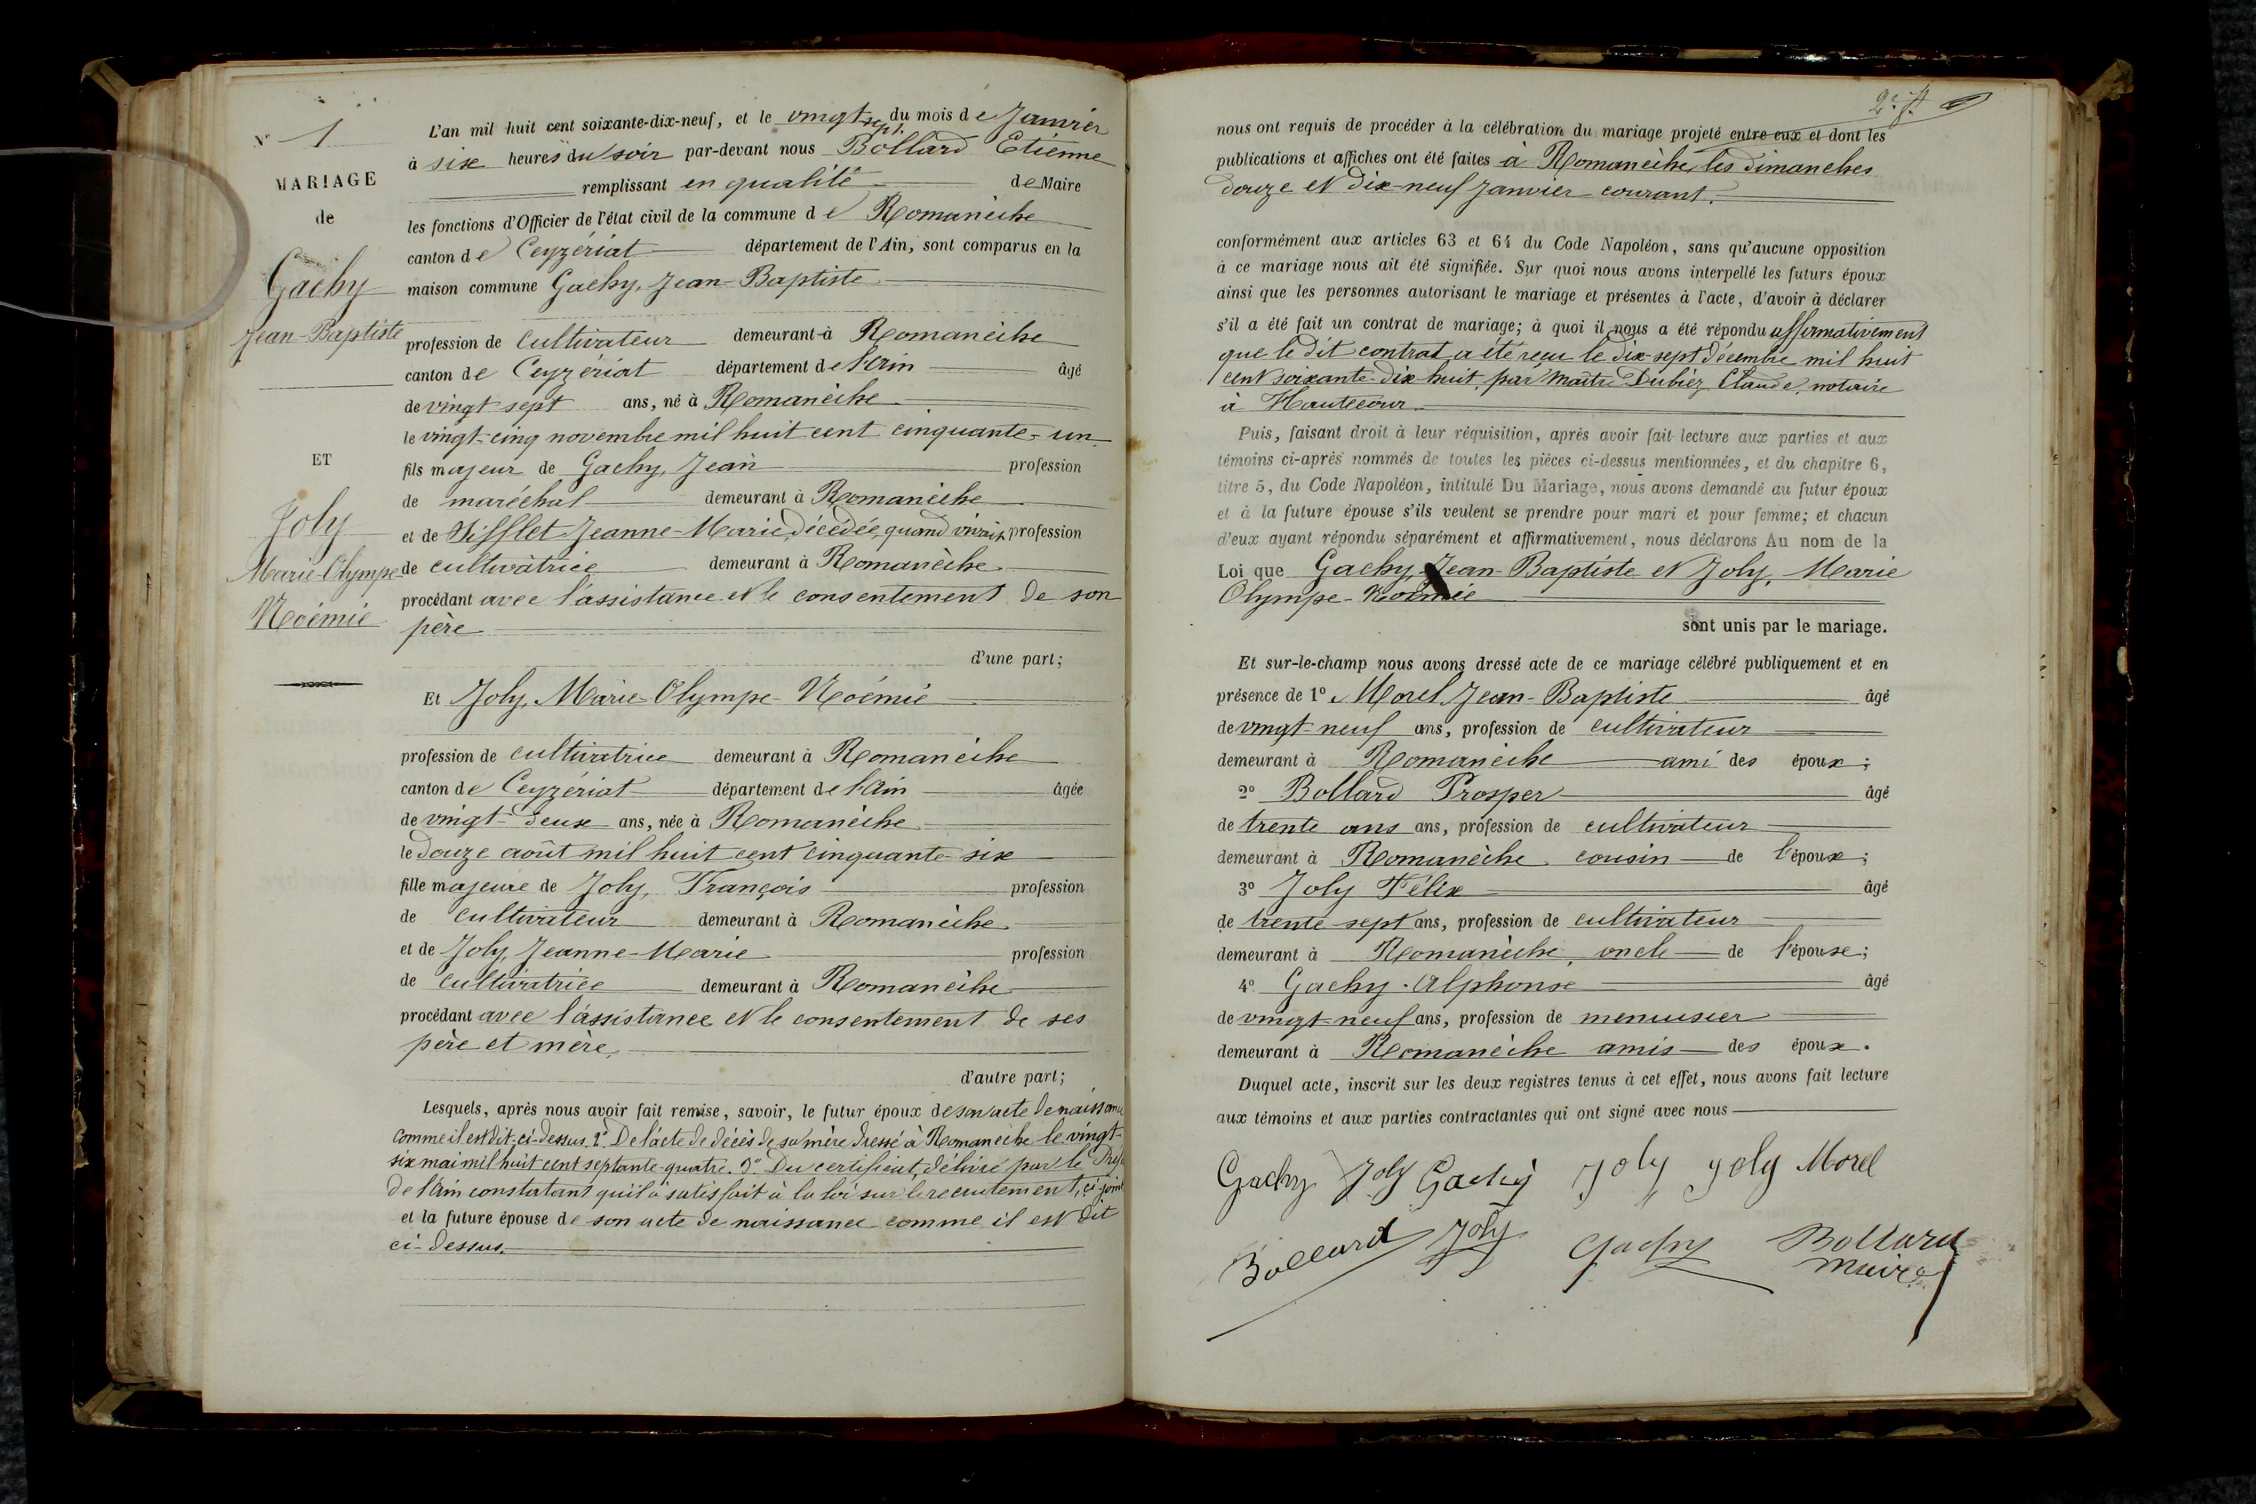 N° 1
MARIAGE
de
Gachy
Jean-Baptiste
ET
Joly
Marie-Olympe
Noémie
L'an mil huit cent soixante-dix-neuf, et le vingt sept du mois de Janvier
à six heures du soir par-devant nous Bollard Etienne
remplissant en qualité de Maire
les fonctions d'Officier de l'état civil de la commune de Romanèche
canton de Ceyzériat département de l'Ain, sont comparus en la
maison commune Gachy, Jean-Baptiste
profession de cultivateur demeurant à Romanèche
canton de Ceyzériat département de l'Ain âgé
de vingt sept ans, né à Romanèche
le vingt-cinq novembre mil huit cent cinquante-un
fils majeur de Gachy, Jean profession
de maréchal demeurant à Romanèche
et de Jeanne-Marie, décédée, quand vivait, profession
de cultivatrice demeurant à Romanèche
procédant avec l'assistance et le consentement de son
père
d'une part;
Et Joly, Marie-Olympe-Noémie
profession de cultivatrice demeurant à Romanèche
canton de Ceyzériat département de l'Ain âgée
de vingt-deux ans, née à Romanèche
le douze août mil huit cent cinquante-six
fille majeure de Joly, François profession
de cultivateur demeurant à Romanèche
et de Joly, Jeanne-Marie profession
de cultivatrice demeurant à Romanèche
procédant avec l'assistance et le consentement de ses
père et mère,
d'autre part;
Lesquels, après nous avoir fait remise, savoir, le futur époux de son acte de naissance
comme il est dit ci-dessus. 2° De l'acte de décès de sa mère dressé à Romanèche le vingt-
six mai mil huit cent septante-quatre. 3° Du certificat, délivré par le
de l'Ain constatant qu'il a satisfait à la loi sur le recrutement, ci-joint
et la future épouse de son acte de naissance comme il est dit
ci-dessus.
nous ont requis de procéder à la célébration du mariage projeté entre eux et dont les
publications et affiches ont été faites à Romanèche, les dimanches
douze et dix-neuf Janvier courant.
conformément aux articles 63 et 64 du Code Napoléon, sans qu'aucune opposition
à ce mariage nous ait été signifiée. Sur quoi nous avons interpellé les futurs époux
ainsi que les personnes autorisant le mariage et présentes à l'acte, d'avoir à déclarer
s'il a été fait un contrat de mariage; à quoi il nous a été répondu affirmativement
que le dit contrat a été reçu le dix-sept décembre mil huit
cent soixante-dix huit, par Maître Dubiez Claude, notaire
à Hautecour
Puis, faisant droit à leur réquisition, après avoir fait lecture aux parties et aux
témoins ci-après nommés de toutes les pièces ci-dessus mentionnées, et du chapitre 6,
titre 5, du Code Napoléon, intitulé Du Mariage, nous avons demandé au futur époux
et à la future épouse s'ils veulent se prendre pour mari et pour femme; et chacun
d'eux ayant répondu séparément et affirmativement, nous déclarons Au nom de la
Loi que Gachy, Jean-Baptiste et Joly, Marie
Olympe-Noémie
sont unis par le mariage.
Et sur-le-champ nous avons dressé acte de ce mariage célébré publiquement et en
présence de 1° Morel Jean-Baptiste âgé
de vingt-neuf ans, profession de cultivateur
demeurant à Romanèche ami des époux;
2° Bollard Prosper âgé
de trente ans ans, profession de cultivateur
demeurant à Romanèche cousin de l'époux;
3° Joly Félix âgé
de trente sept ans, profession de cultivateur
demeurant à Romanèche, oncle de l'épouse;
4° Gachy Alphonse âgé
de vingt-neuf ans, profession de menuisier
demeurant à Romanèche amis des époux.
Duquel acte, inscrit sur les deux registres tenus à cet effet, nous avons fait lecture
aux témoins et aux parties contractantes qui ont signé avec nous
Gachy Joly Gachy Joly Joly Morel
Bollard Joly Gachy Bollard
maire